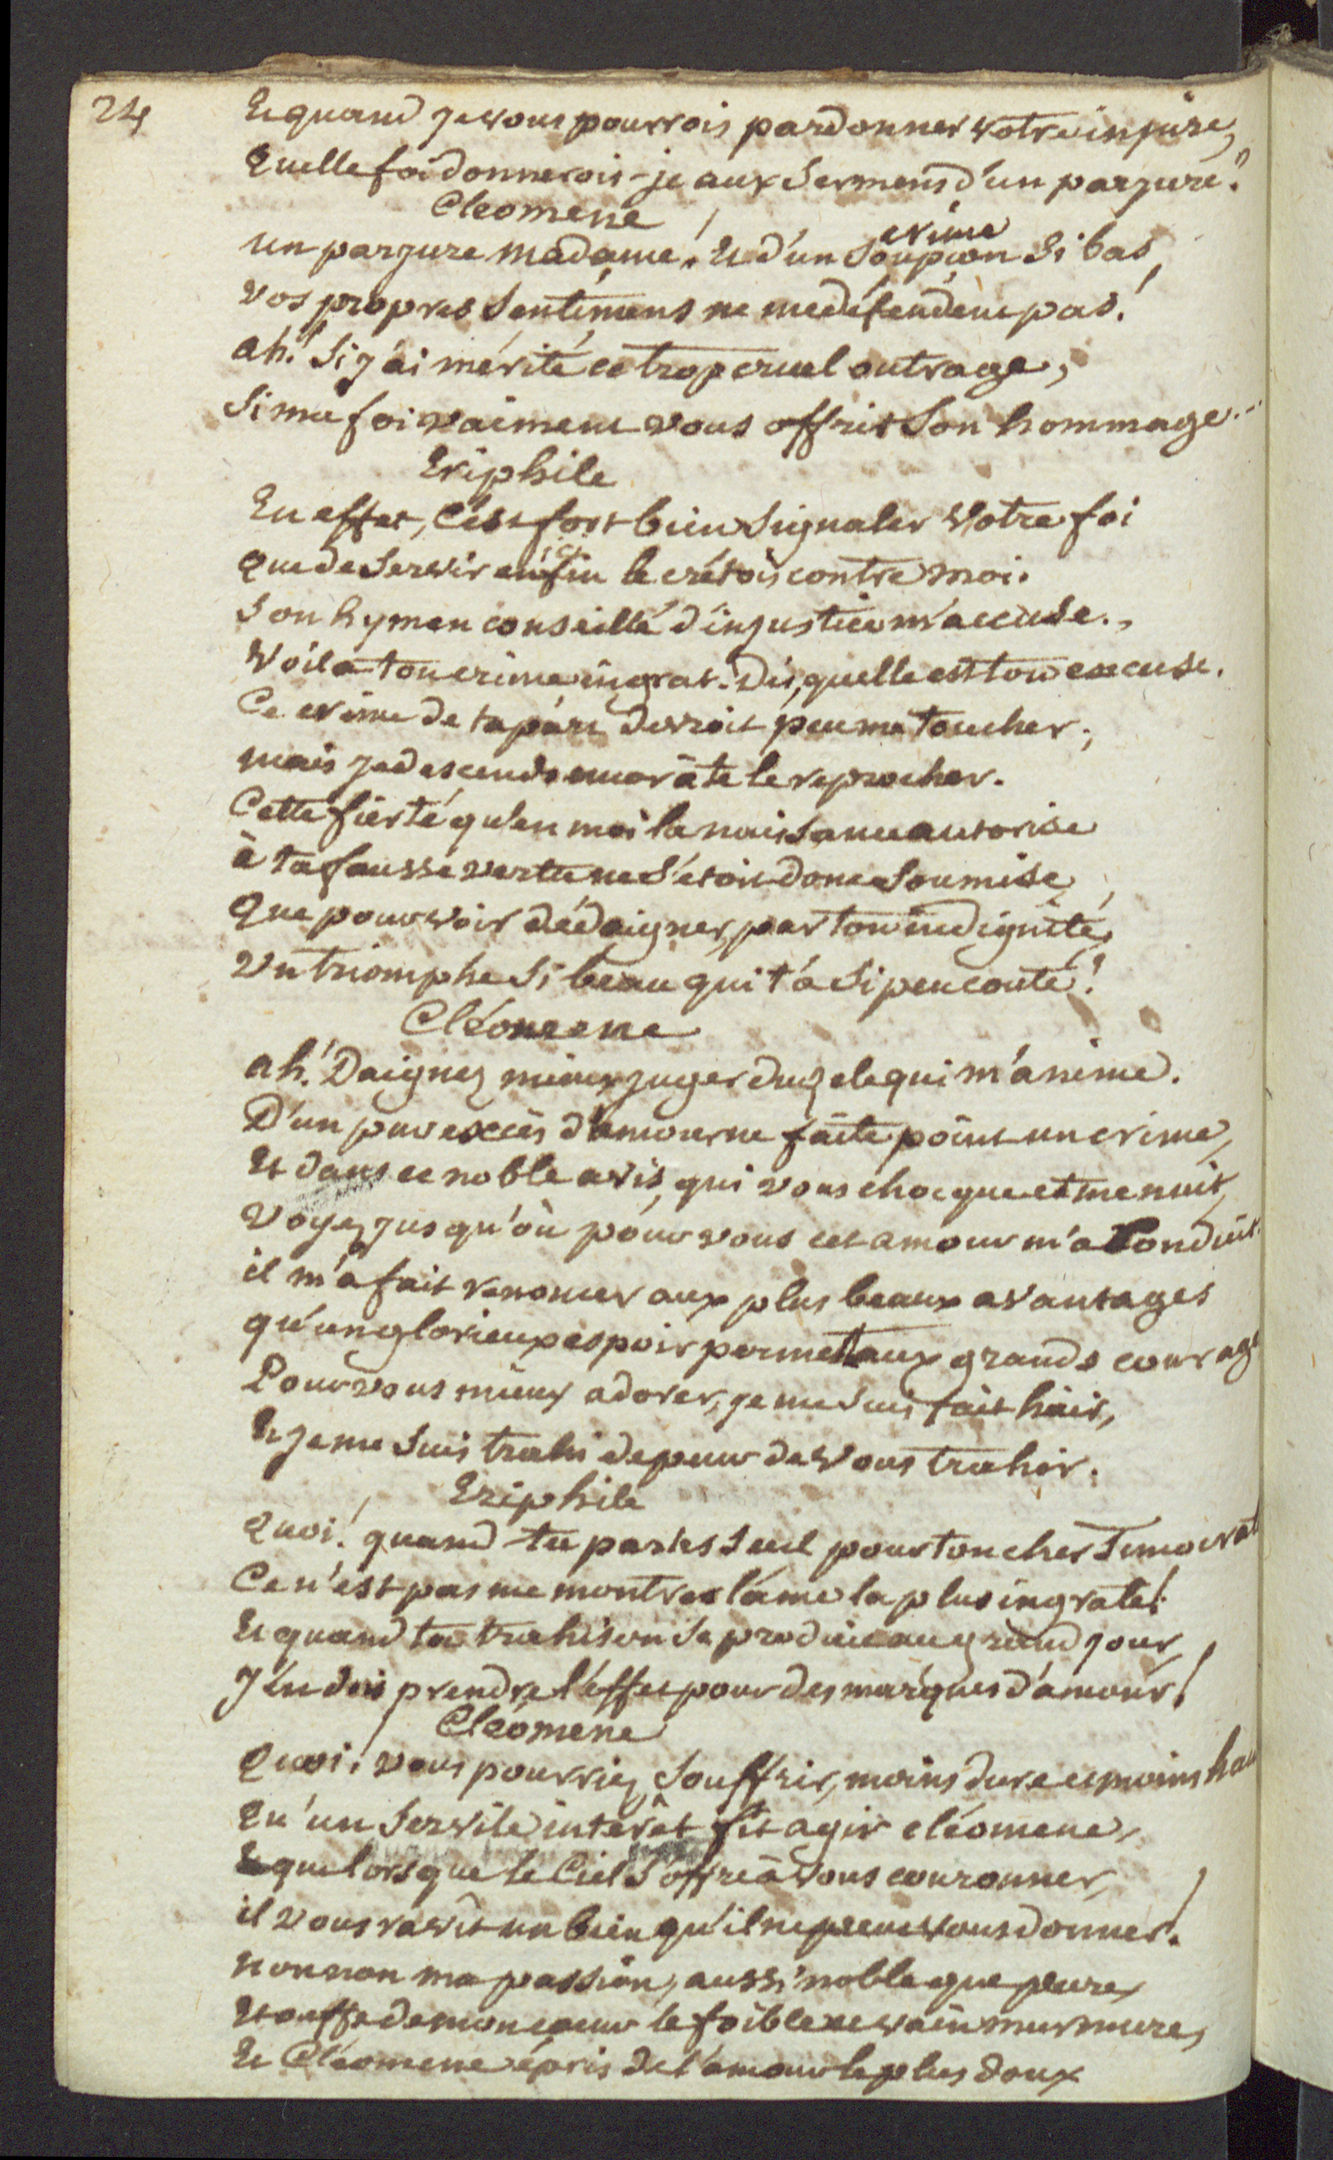 24
Et quand je vous pourrois pardonner votre injure,
Quelle foi donnerois-je aux Sermens d'un parjure?
Cleomene
un parjure Madame! Et d'un crime Soupçon Si bas,
vos propres Sentimens ne me défendent pas!
ah! Si j'ai mérité ce trop cruel outrage,
Si ma foi vaiment vous offrit Son hommage...
Eriphile
En effet, C'est fort bien Signaler Votre foi
Que de Servir ici le crétois contre moi.
Son hymen conseillé d'injustice m'accuse.
Voila ton crime ingrat. Dis, quelle est ton excuse.
Ce crime de ta part devroit peu me toucher;
mais je descends encor à te le reprocher.
Cette fierté qu'en moi la naissance autorise
à ta fausse vertu ne S'étoit donc Soumise
Que pour voir dédaigner, par ton indignité,
Un triomphe Si beau qui t'a Si peu couté!
Cléomene
ah! Daignez mieux juger du zele qui m'anime.
D'un pur excès d'amour ne faite point un crime,
Et dans ce noble avis, qui vous choque et me nuit,
Voyez jusqu'où pour vous cet amour m'a Conduit.
il m'a fait renoncer aux plus beaux avantages
qu'un glorieux espoir permet aux grands courage
Pour vous mieux adorer, je me Suis fait haïr,
Et je me Suis trahi de peur de Vous trahir.
Eriphile
Quoi! quand tu parles Seul pour ton cher Timocrat
Ce n'est pas me montrer l'ame la plus ingrate!
Et quand ta trahison Se produit au grand jour,
J'en dois prendre l'effet pour des marques d'amour!
Cléomene
Quoi! vous pourriez Souffrir, moins dure et moins hau
Qu'un Servile intérêt fit agir cléomene,
Et que lorsque le Ciel S'offre à vous couronner,
il vous ravit un bien qu'il ne peut vous donner!
non non ma passion, aussi noble que pure,
Etouffe de mon coeur le foible et vain murmure,
Et Cléomene épris de l'amour le plus doux